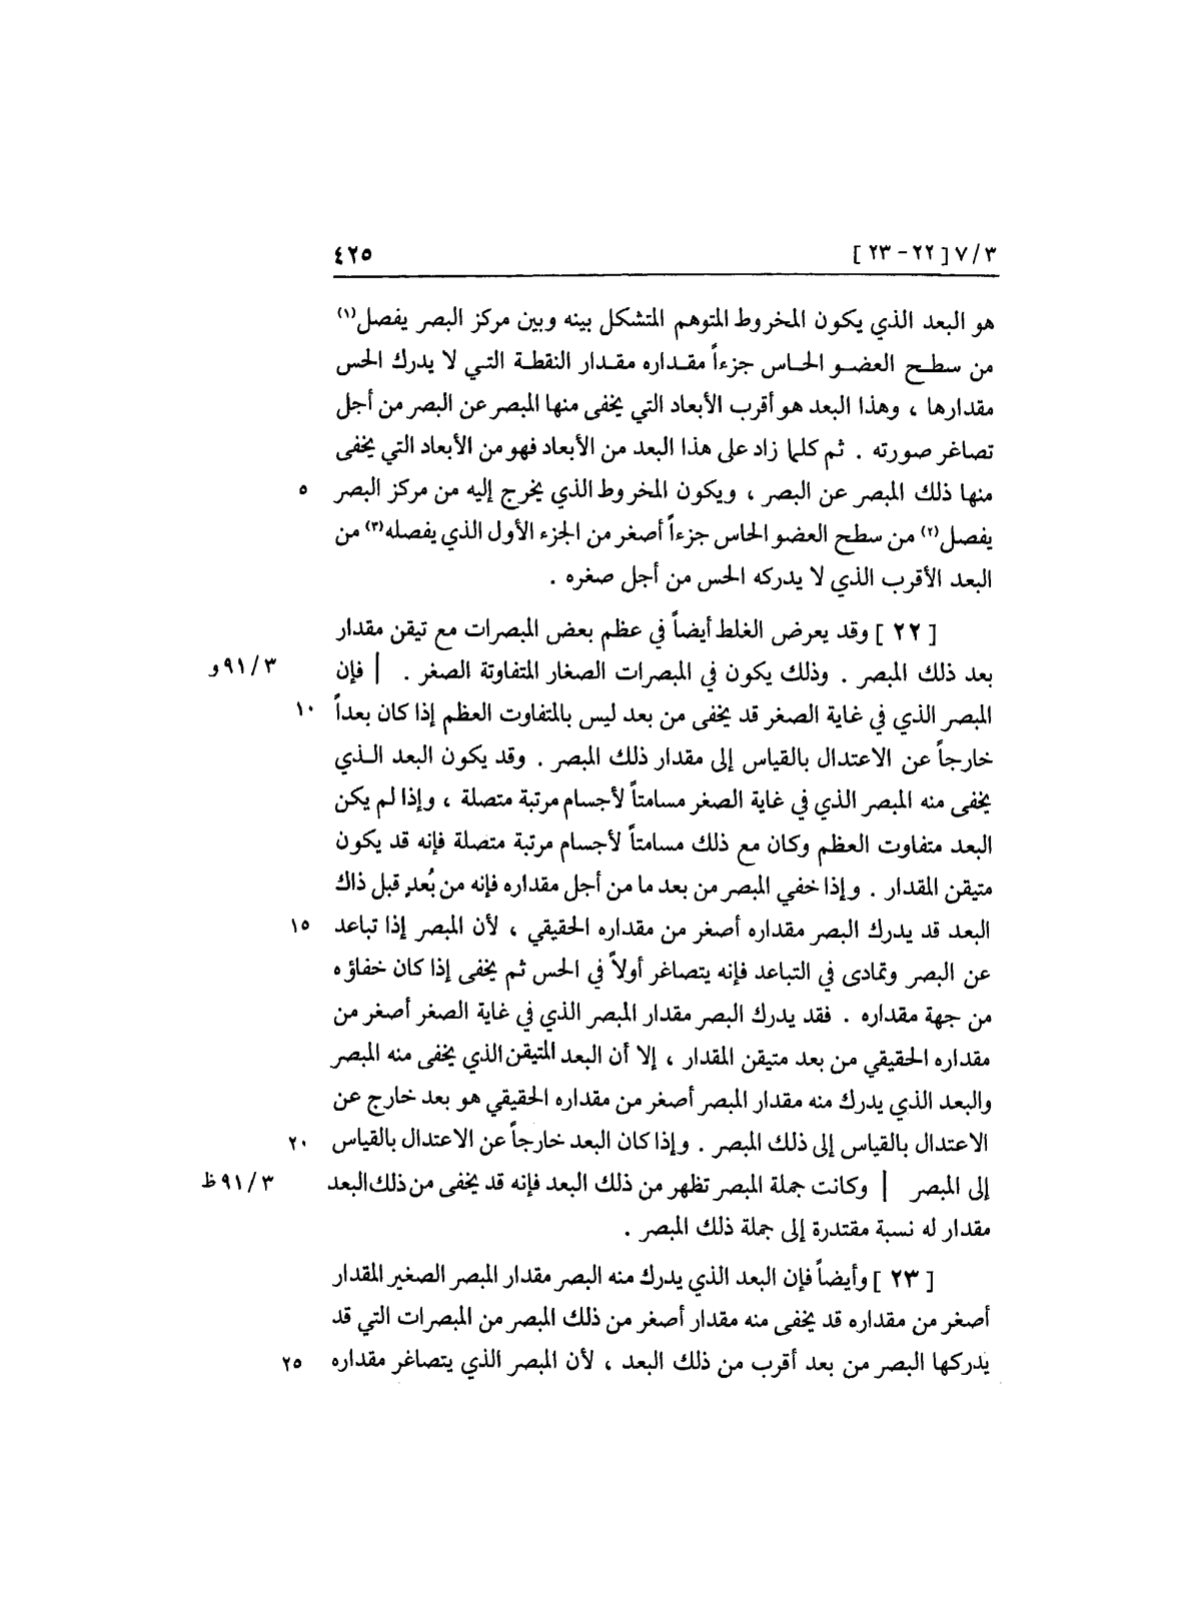 ٣/٧ [ ٢٢ - ٢٣ ] ٤٢٥
هو البعد الذي يكون المخروط المتوهم المتشكل بينه وبين مركز البصر يفصل(١)
من سطح العضو الحاس جزءاً مقداره مقدار النقطة التي لا يدرك الحس
مقدارها ، وهذا البعد هو أقرب الأبعاد التي يخفى منها المبصر عن البصر من أجل
تصاغر صورته . ثم كلما زاد على هذا البعد من الأبعاد فهو من الأبعاد التي يخفى
منها ذلك المبصر عن البصر ، ويكون المخروط الذي يخرج إليه من مركز البصر ٥
يفصل(٢) من سطح العضو الحاس جزءاً أصغر من الجزء الأول الذي يفصله(٣) من
البعد الأقرب الذي لا يدركه الحس من أجل صغره .
[ ٢٢ ] وقد يعرض الغلط أيضاً في عظم بعض المبصرات مع تيقن مقدار
بعد ذلك المبصر . وذلك يكون في المبصرات الصغار المتفاوتة الصغر . | فإن ٣/٩١و
المبصر الذي في غاية الصغر قد يخفى من بعد ليس بالمتفاوت العظم إذا كان بعداً ١٠
خارجاً عن الاعتدال بالقياس إلى مقدار ذلك المبصر . وقد يكون البعد الذي
يخفى منه المبصر الذي في غاية الصغر مسامتاً لأجسام مرتبة متصلة ، وإذا لم يكن
البعد متفاوت العظم وكان مع ذلك مسامتاً لأجسام مرتبة متصلة فإنه قد يكون
متيقن المقدار . وإذا خفي المبصر من بعد ما من أجل مقداره فإنه من بُعدٍ قبل ذاك
البعد قد يدرك البصر مقداره أصغر من مقداره الحقيقي ، لأن المبصر إذا تباعد ١٥
عن البصر وتمادى في التباعد فإنه يتصاغر أولاً في الحس ثم يخفى إذا كان خفاؤه
من جهة مقداره . فقد يدرك البصر مقدار المبصر الذي في غاية الصغر أصغر من
مقداره الحقيقي من بعد متيقن المقدار ، إلا أن البعد المتيقن الذي يخفى منه المبصر
والبعد الذي يدرك منه مقدار المبصر أصغر من مقداره الحقيقي هو بعد خارج عن
الاعتدال بالقياس إلى ذلك المبصر . وإذا كان البعد خارجاً عن الاعتدال بالقياس ٢٠
إلى المبصر | وكانت جملة المبصر تظهر من ذلك البعد فإنه قد يخفى من ذلك البعد ٣/٩١ظ
مقدار له نسبة مقتدرة إلى جملة ذلك المبصر .
[ ٢٣ ] وأيضاً فإن البعد الذي يدرك منه البصر مقدار المبصر الصغير المقدار
أصغر من مقداره قد يخفى منه مقدار أصغر من ذلك المبصر من المبصرات التي قد
يدركها البصر من بعد أقرب من ذلك البعد ، لأن المبصر الذي يتصاغر مقداره ٢٥